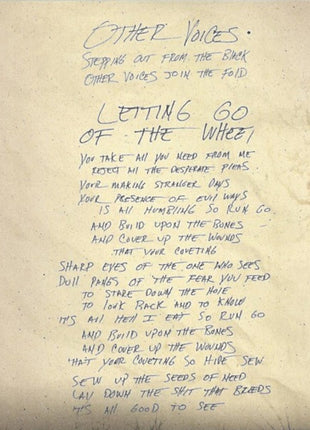 OTHER VOICES
STEPPING OUT FROM THE BLACK
OTHER VOICES JOIN THE FOLD
LETTING GO
OF THE WHEEL
YOU TAKE ALL YOU NEED FROM ME
REJECT ALL THE DESPERATE PLEAS
YOUR MAKING STRANGER DAYS
YOUR PRESENCE OF EVIL WAYS
IS ALL HUMBLING SO RUN GO
AND BUILD UPON THE BONES
AND COVER UP THE WOUNDS
THAT YOUR COVETING
SHARP EYES OF THE ONE WHO SEES
DULL PANGS OF THE FEAR YOU FEED
TO STARE DOWN THE HOLE
TO LOOK BACK AND TO KNOW
IT'S ALL HELL I EAT SO RUN GO
AND BUILD UPON THE BONES
AND COVER UP THE WOUNDS
THAT YOUR COVETING SO HIDE SEW
SEW UP THE SEEDS OF NEED
LAY DOWN THE SHIT THAT BREEDS
IT'S ALL GOOD TO SEE